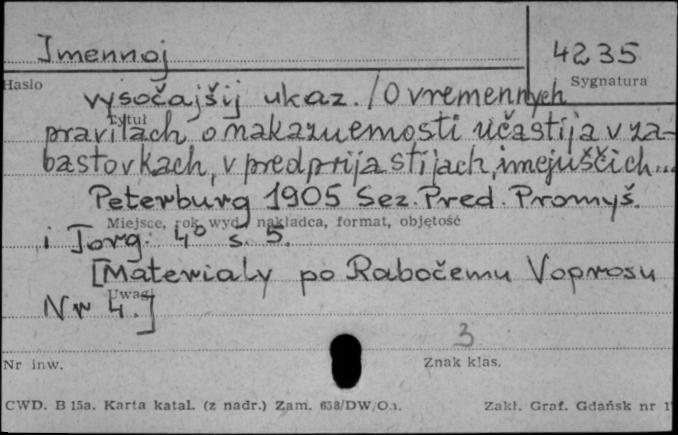 Imennoj
4235
Hasło
Sygnatura
vysočajšij ukaz. /O vremennych
Tytuł
pravilach o nakazuemosti učastija v za-
bastovkach, v predprijastijach, imejuščich...
Peterburg 1905 Sez. Pred. Promyš.
Miejsce, rok wyd., nakładca, format, objętość
i Torg. 4° s. 5.
[Materialy po Rabočemu Voprosu
Uwagi
Nr 4.]
3
Nr inw.
Znak klas.
CWD. B 15a. Karta katal. (z nadr.) Zam. 658/DW/O.
Zakł. Graf. Gdańsk nr 1